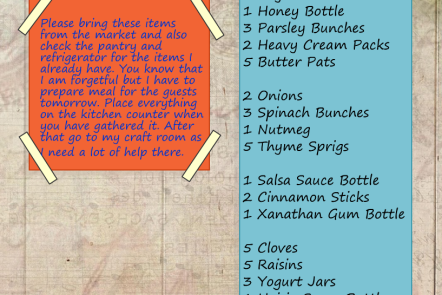 Please bring these items
from the market and also
check the pantry and
refrigerator for the items I
already have. You know that
I am forgetful but I have to
prepare meal for the guests
tomorrow. Place everything
on the kitchen counter when
you have gathered it. After
that go to my craft room as
I need a lot of help there.
1 Honey Bottle
3 Parsley Bunches
2 Heavy Cream Packs
5 Butter Pats
2 Onions
3 Spinach Bunches
1 Nutmeg
5 Thyme Sprigs
1 Salsa Sauce Bottle
2 Cinnamon Sticks
1 Xanathan Gum Bottle
5 Cloves
5 Raisins
3 Yogurt Jars